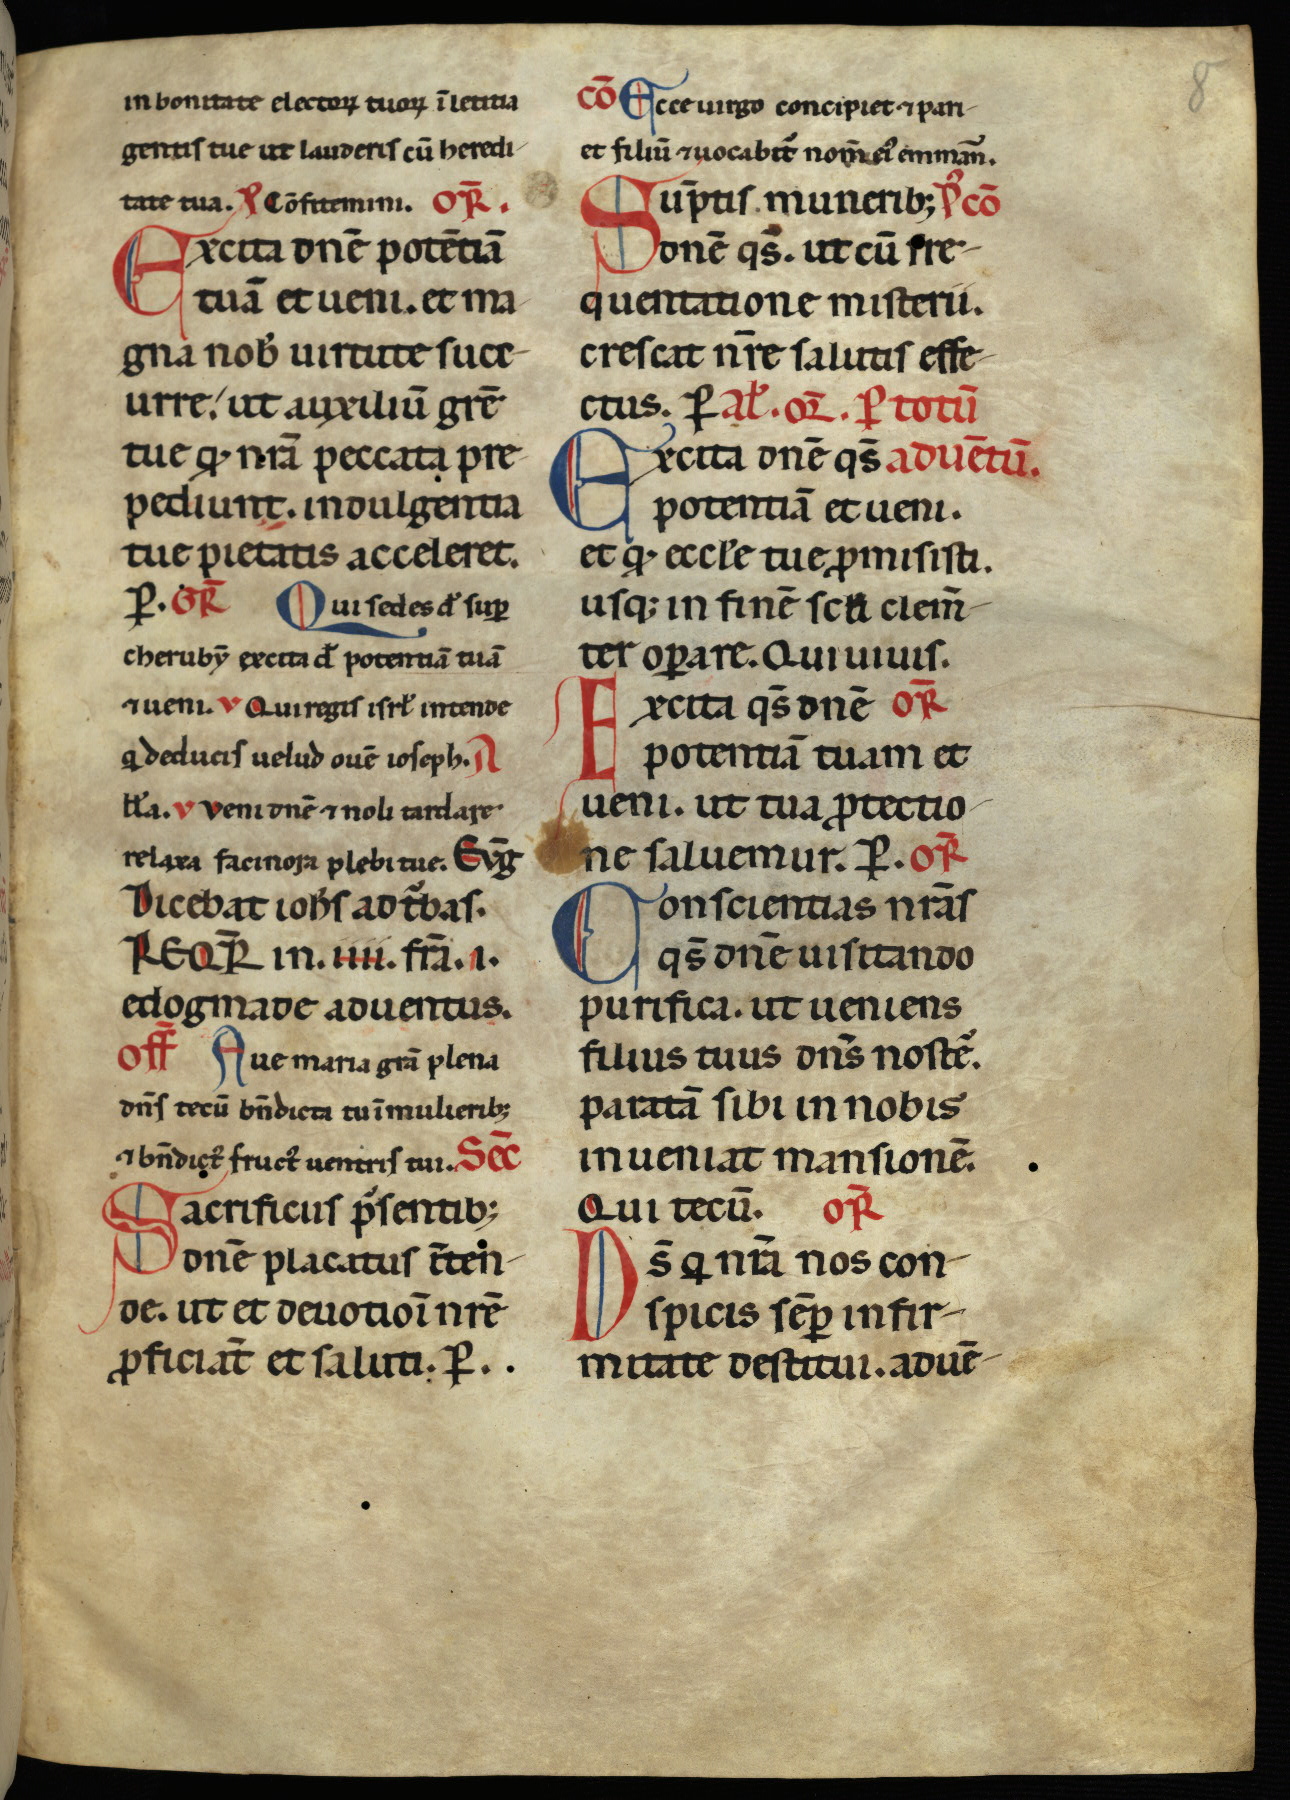 in bonitate electoꝝ tuoꝝ ī letitia
gentis tue ut lauderis cū heredi-
tate tua. P̄s Cōfitemini. OR̄.
Excita dn̄e potētiā
tuā et ueni. et ma-
gna nob̄ uirtute succ-
urre. ut auxiliū grē
tue qͥ nr̄a peccata pre-
pediunt. indulgentia
tue pietatis acceleret.
P. OR̄ Qui sedes dn̄e suꝑ
cherubȳ excita dn̄e potentiā tuā
⁊ ueni. v Qui regis isrl̄ intende
q̇ deducis uelud ouē ioseph. A
ll̄a. v Veni dn̄e ⁊ noli tardare
relaxa facinora plebi tue. Evḡ
Dicebat ioh̄s ad t̄bas.
REQR̄ in. iiii. fr̄a. i.
edogmade aduentus.
off̄ Aue maria gr̄a plena
dn̄s tecū bn̄dicta tu ī mulierib;
⁊ bn̄dict᷒ fruct᷒ uentris tui. Sec̄
Sacrificiis p̄sentib;
dn̄e placatus īten-
de. ut et deuotioī nrē
ꝓficiāt et saluti. P. .
cō Ecce uirgo concipiet ⁊ pari-
et filiū ⁊ uocabit᷒ nom̄ ei᷒ emman̄.
Sūptis muneribꝫ Pͦ cō
dn̄e qs̄. ut cū fre-
quentatione misterii.
crescat nr̄e salutis effe-
ctus. P Al̄. or̄. P totū
Excita dn̄e qs̄ aduētū.
potentiā et ueni.
et qͥ eccl̄e tue ꝓmisisti.
usqꝫ in finē scłi clem̄-
ter oꝑare. Qui uiuis.
Excita qs̄ dn̄e OR̄
potentiā tuam et
ueni. ut tua ꝓtectio-
ne saluemur. P. OR̄
Conscientias nr̄as
qs̄ dn̄e uisitando
purifica. ut ueniens
filius tuus dn̄s noster̄.
paratā sibi in nobis
inueniat mansionē.
Qui tecū. OR̄
Ds̄ q nr̄a nos con-
spicis sēꝑ infir-
mitate destitui. aduē-
8